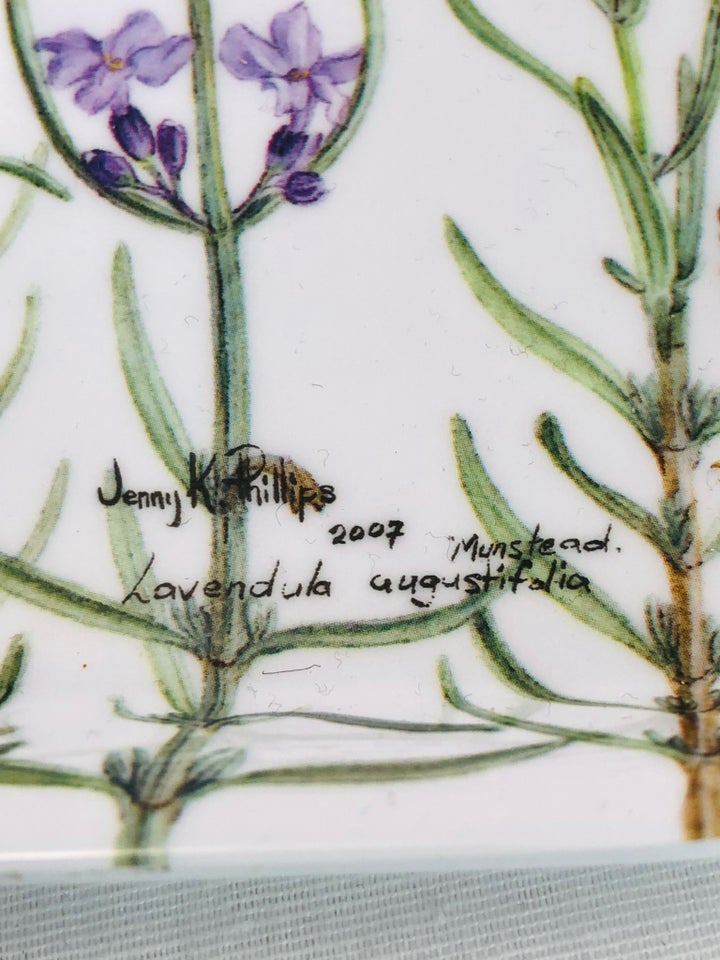 Jenny K. Phillips
2007
Munstead.
Lavendula augustifolia